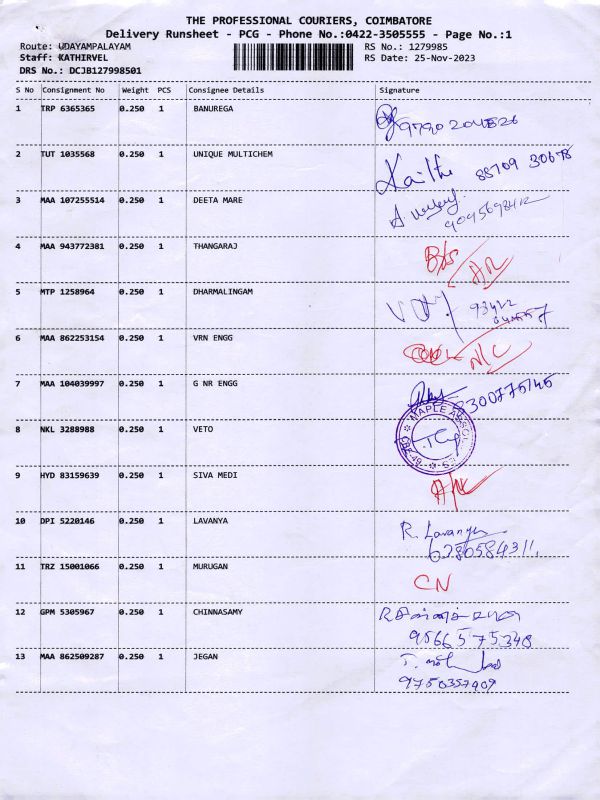 THE PROFESSIONAL COURIERS, COIMBATORE
Delivery Runsheet - PCG - Phone No.:0422-3505555 - Page No.:1
Route: UDAYAMPALAYAM RS No.: 1279985
Staff: KATHIRVEL RS Date: 25-Nov-2023
DRS No.: DCJB127998501
S No Consignment No Weight PCS Consignee Details Signature
1 TRP 6365365 0.250 1 BANUREGA
2 TUT 1035568 0.250 1 UNIQUE MULTICHEM
88709 30678
3 MAA 107255514 0.250 1 DEETA MARE
4 MAA 943772381 0.250 1 THANGARAJ
5 MTP 1258964 0.250 1 DHARMALINGAM
6 MAA 862253154 0.250 1 VRN ENGG
N/C
7 MAA 104039997 0.250 1 G NR ENGG
8 NKL 3288988 0.250 1 VETO
MAPLE
9 HYD 83159639 0.250 1 SIVA MEDI
10 DPI 5220146 0.250 1 LAVANYA
R. Lavanya
6280584311.
11 TRZ 15001066 0.250 1 MURUGAN
CN
12 GPM 5305967 0.250 1 CHINNASAMY
9566575348
13 MAA 862509287 0.250 1 JEGAN
9750357909